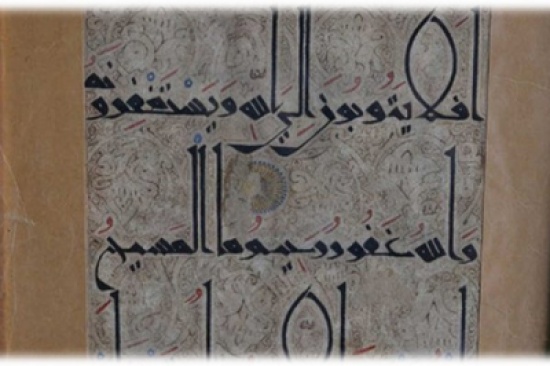 افلا يتوبون الى الله ويستغفرونه
والله غفور رحيم ما المسيح